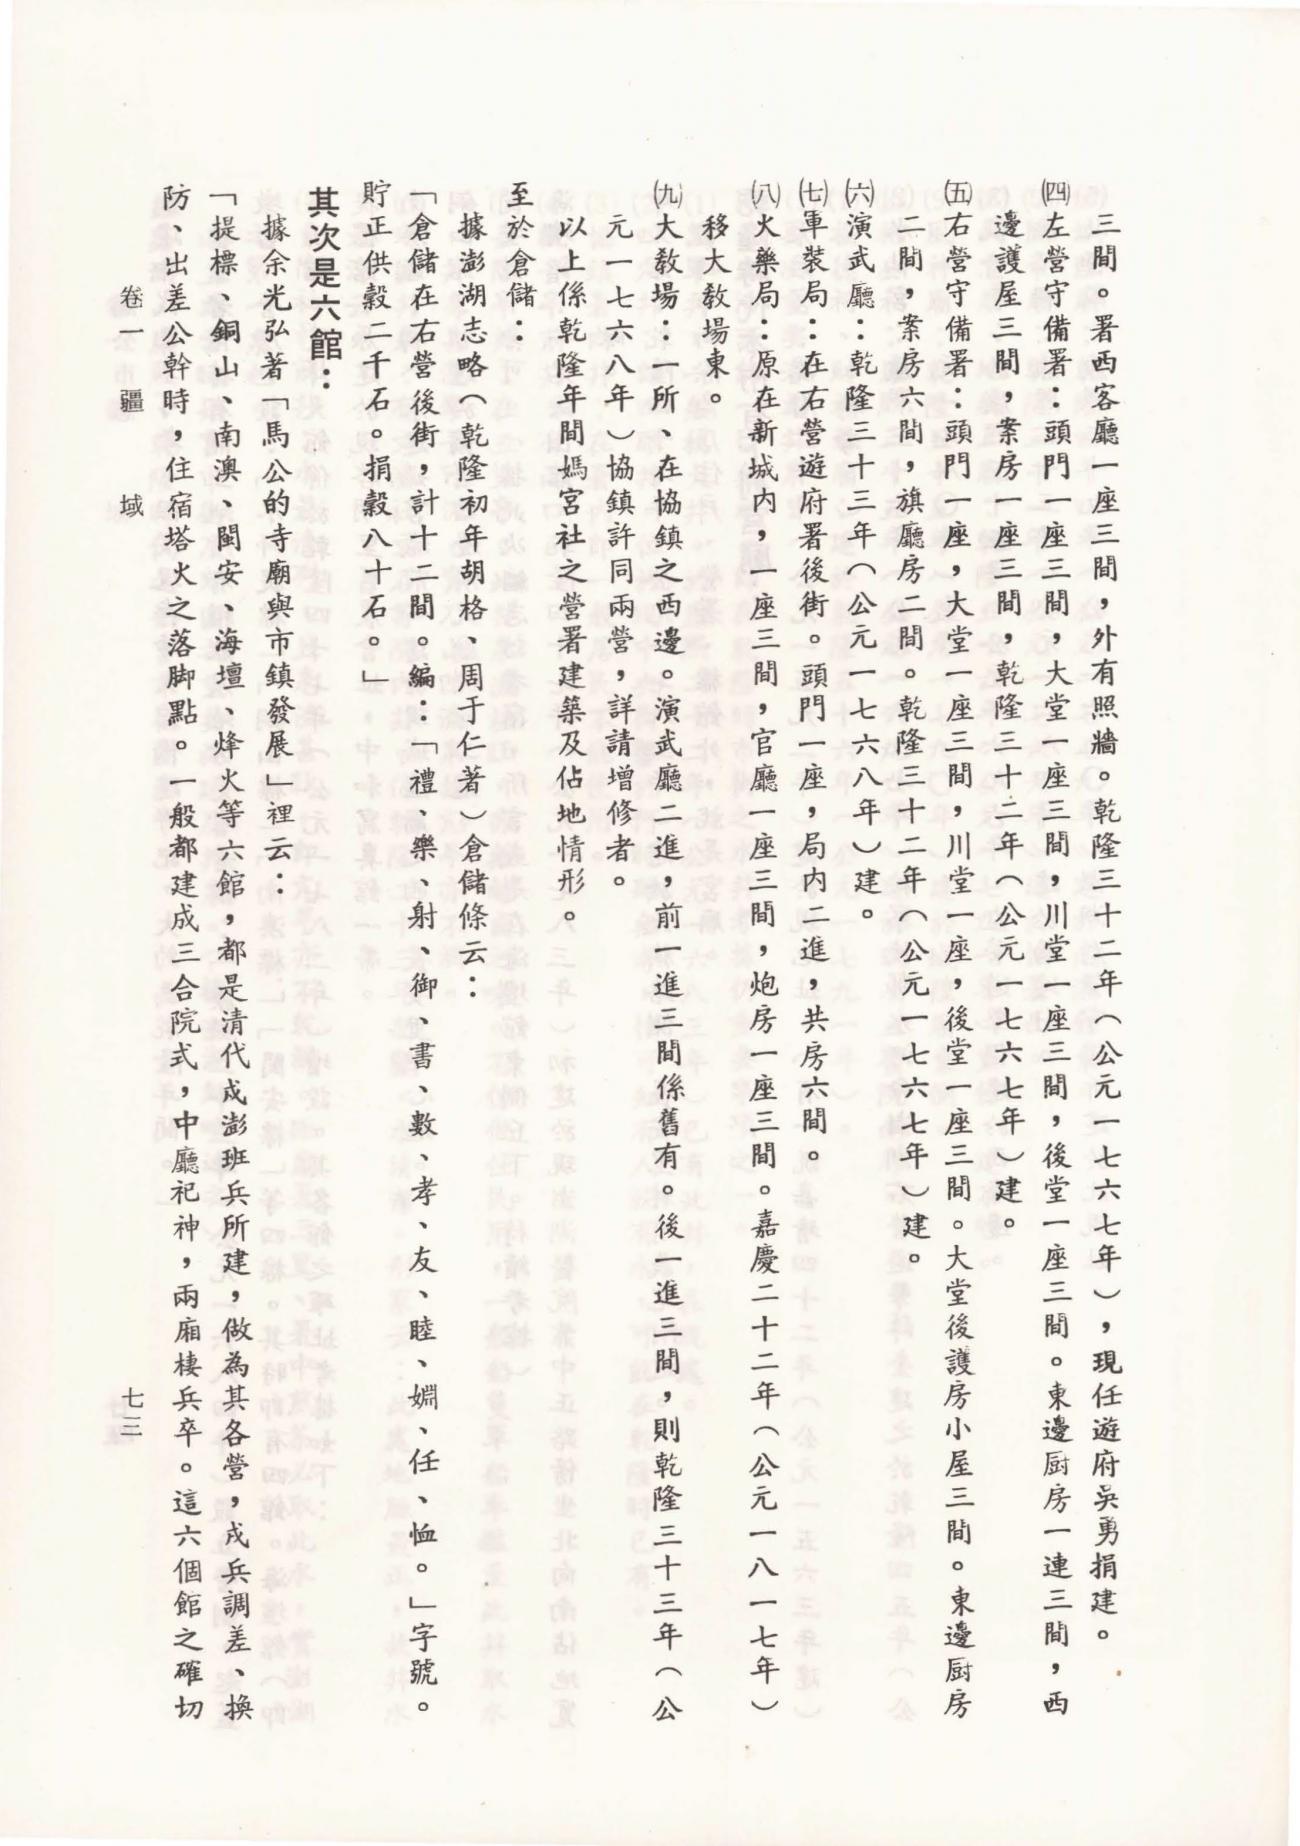 三間。署西客廳一座三間，外有照牆。乾隆三十二年（公元一七六七年），現任遊府吳勇捐建。
㈣左營守備署：頭門一座三間，大堂一座三間，川堂一座三間，後堂一座三間。東邊厨房一連三間，西
邊護屋三間，案房一座三間，乾隆三十二年（公元一七六七年）建。
㈤右營守備署：頭門一座，大堂一座三間，川堂一座，後堂一座三間。大堂後護房小屋三間。東邊厨房
二間，案房六間，旗廳房二間。乾隆三十二年（公元一七六七年）建。
㈥演武廳：乾隆三十三年（公元一七六八年）建。
㈦軍裝局：在右營遊府署後街。頭門一座，局內二進，共房六間。
㈧火藥局：原在新城內，一座三間，官廳一座三間，炮房一座三間。嘉慶二十二年（公元一八一七年）
移大教場東。
㈨大教場：一所、在協鎮之西邊。演武廳二進，前一進三間係舊有。後一進三間，則乾隆三十三年（公
元一七六八年）協鎮許同兩營，詳請增修者。
以上係乾隆年間媽宮社之營署建築及佔地情形。
至於倉儲：
據澎湖志略（乾隆初年胡格、周于仁著）倉儲條云：
「倉儲在右營後街，計十二間。編：「禮、樂、射、御、書、數、孝、友、睦、婣、任、恤。」字號。
貯正供穀二千石。捐穀八十石。」
其次是六館：
據余光弘著「馬公的寺廟與市鎮發展」裡云：
「提標、銅山、南澳、閩安、海壇、烽火等六館，都是清代戍澎班兵所建，做為其各營，戍兵調差、換
防、出差公幹時，住宿塔火之落脚點。一般都建成三合院式，中廳祀神，兩廂棲兵卒。這六個館之確切
卷一　疆　域
七三